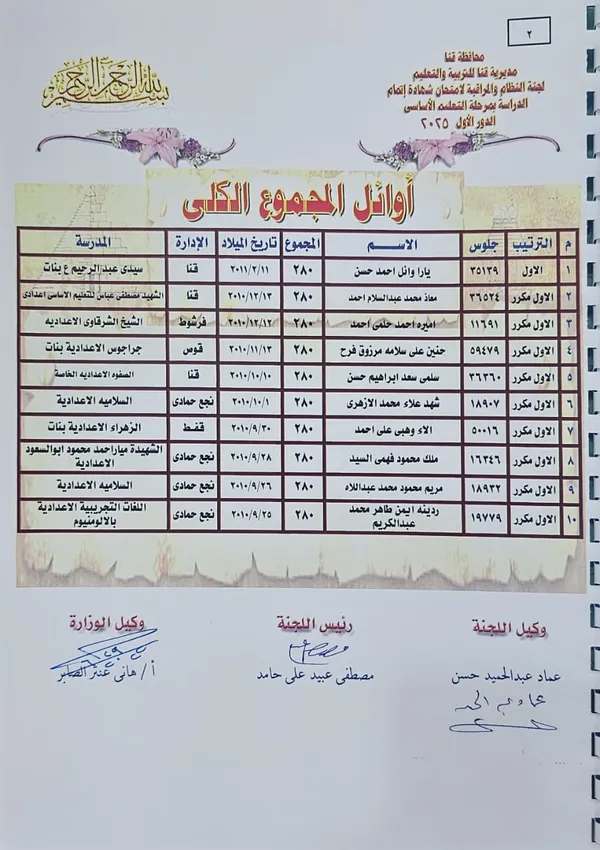 ٢
بسم الله الرحمن الرحيم
محافظة قنا
مديرية قنا للتربية والتعليم
لجنة النظام والمراقبة لامتحان شهادة إتمام
الدراسة بمرحلة التعليم الأساسى
الدور الأول ٢٠٢٥
أوائل المجموع الكلى
م الترتيب جلوس الاســم المجموع تاريخ الميلاد الإدارة المدرسة
١ الاول ٣٥١٣٩ يارا وائل احمد حسن ٢٨٠ ٢٠١١/٢/١١ قنا سيدى عبد الرحيم ع بنات
٢ الاول مكرر ٣٦٥٢٤ معاذ محمد عبدالسلام احمد ٢٨٠ ٢٠١٠/١٢/١٣ قنا الشهيد مصطفى عباس للتعليم الاساسى اعدادى
٣ الاول مكرر ١١٦٩١ اميره احمد حلمى احمد ٢٨٠ ٢٠١٠/١٢/١٢ فرشوط الشيخ الشرقاوى الاعداديه
٤ الاول مكرر ٥٩٤٧٩ حنين على سلامه مرزوق فرح ٢٨٠ ٢٠١٠/١١/١٣ قوص جراجوس الاعدادية بنات
٥ الاول مكرر ٣٦٣٦٠ سلمى سعد ابراهيم حسن ٢٨٠ ٢٠١٠/١٠/١٠ قنا الصفوه الاعداديه الخاصة
٦ الاول مكرر ١٨٩٠٧ شهد علاء محمد الازهرى ٢٨٠ ٢٠١٠/١٠/١ نجع حمادى السلاميه الاعدادية
٧ الاول مكرر ٥٠٠١٦ الاء وهبى على احمد ٢٨٠ ٢٠١٠/٩/٣٠ قفط الزهراء الاعدادية بنات
٨ الاول مكرر ١٦٣٤٦ ملك محمود فهمى السيد ٢٨٠ ٢٠١٠/٩/٢٨ نجع حمادى الشهيدة ميار احمد محمود ابوالسعود
الاعدادية
٩ الاول مكرر ١٨٩٣٢ مريم محمود محمد عبداللاه ٢٨٠ ٢٠١٠/٩/٢٦ نجع حمادى السلاميه الاعدادية
١٠ الاول مكرر ١٩٧٧٩ ردينه ايمن طاهر محمد ٢٨٠ ٢٠١٠/٩/٢٥ نجع حمادى اللغات التجريبية الاعدادية
عبدالكريم بالالومنيوم
وكيل اللجنة رئيس اللجنة وكيل الوزارة
عماد عبدالحميد حسن مصطفى عبيد على حامد أ/ هانى عنتر الصابر